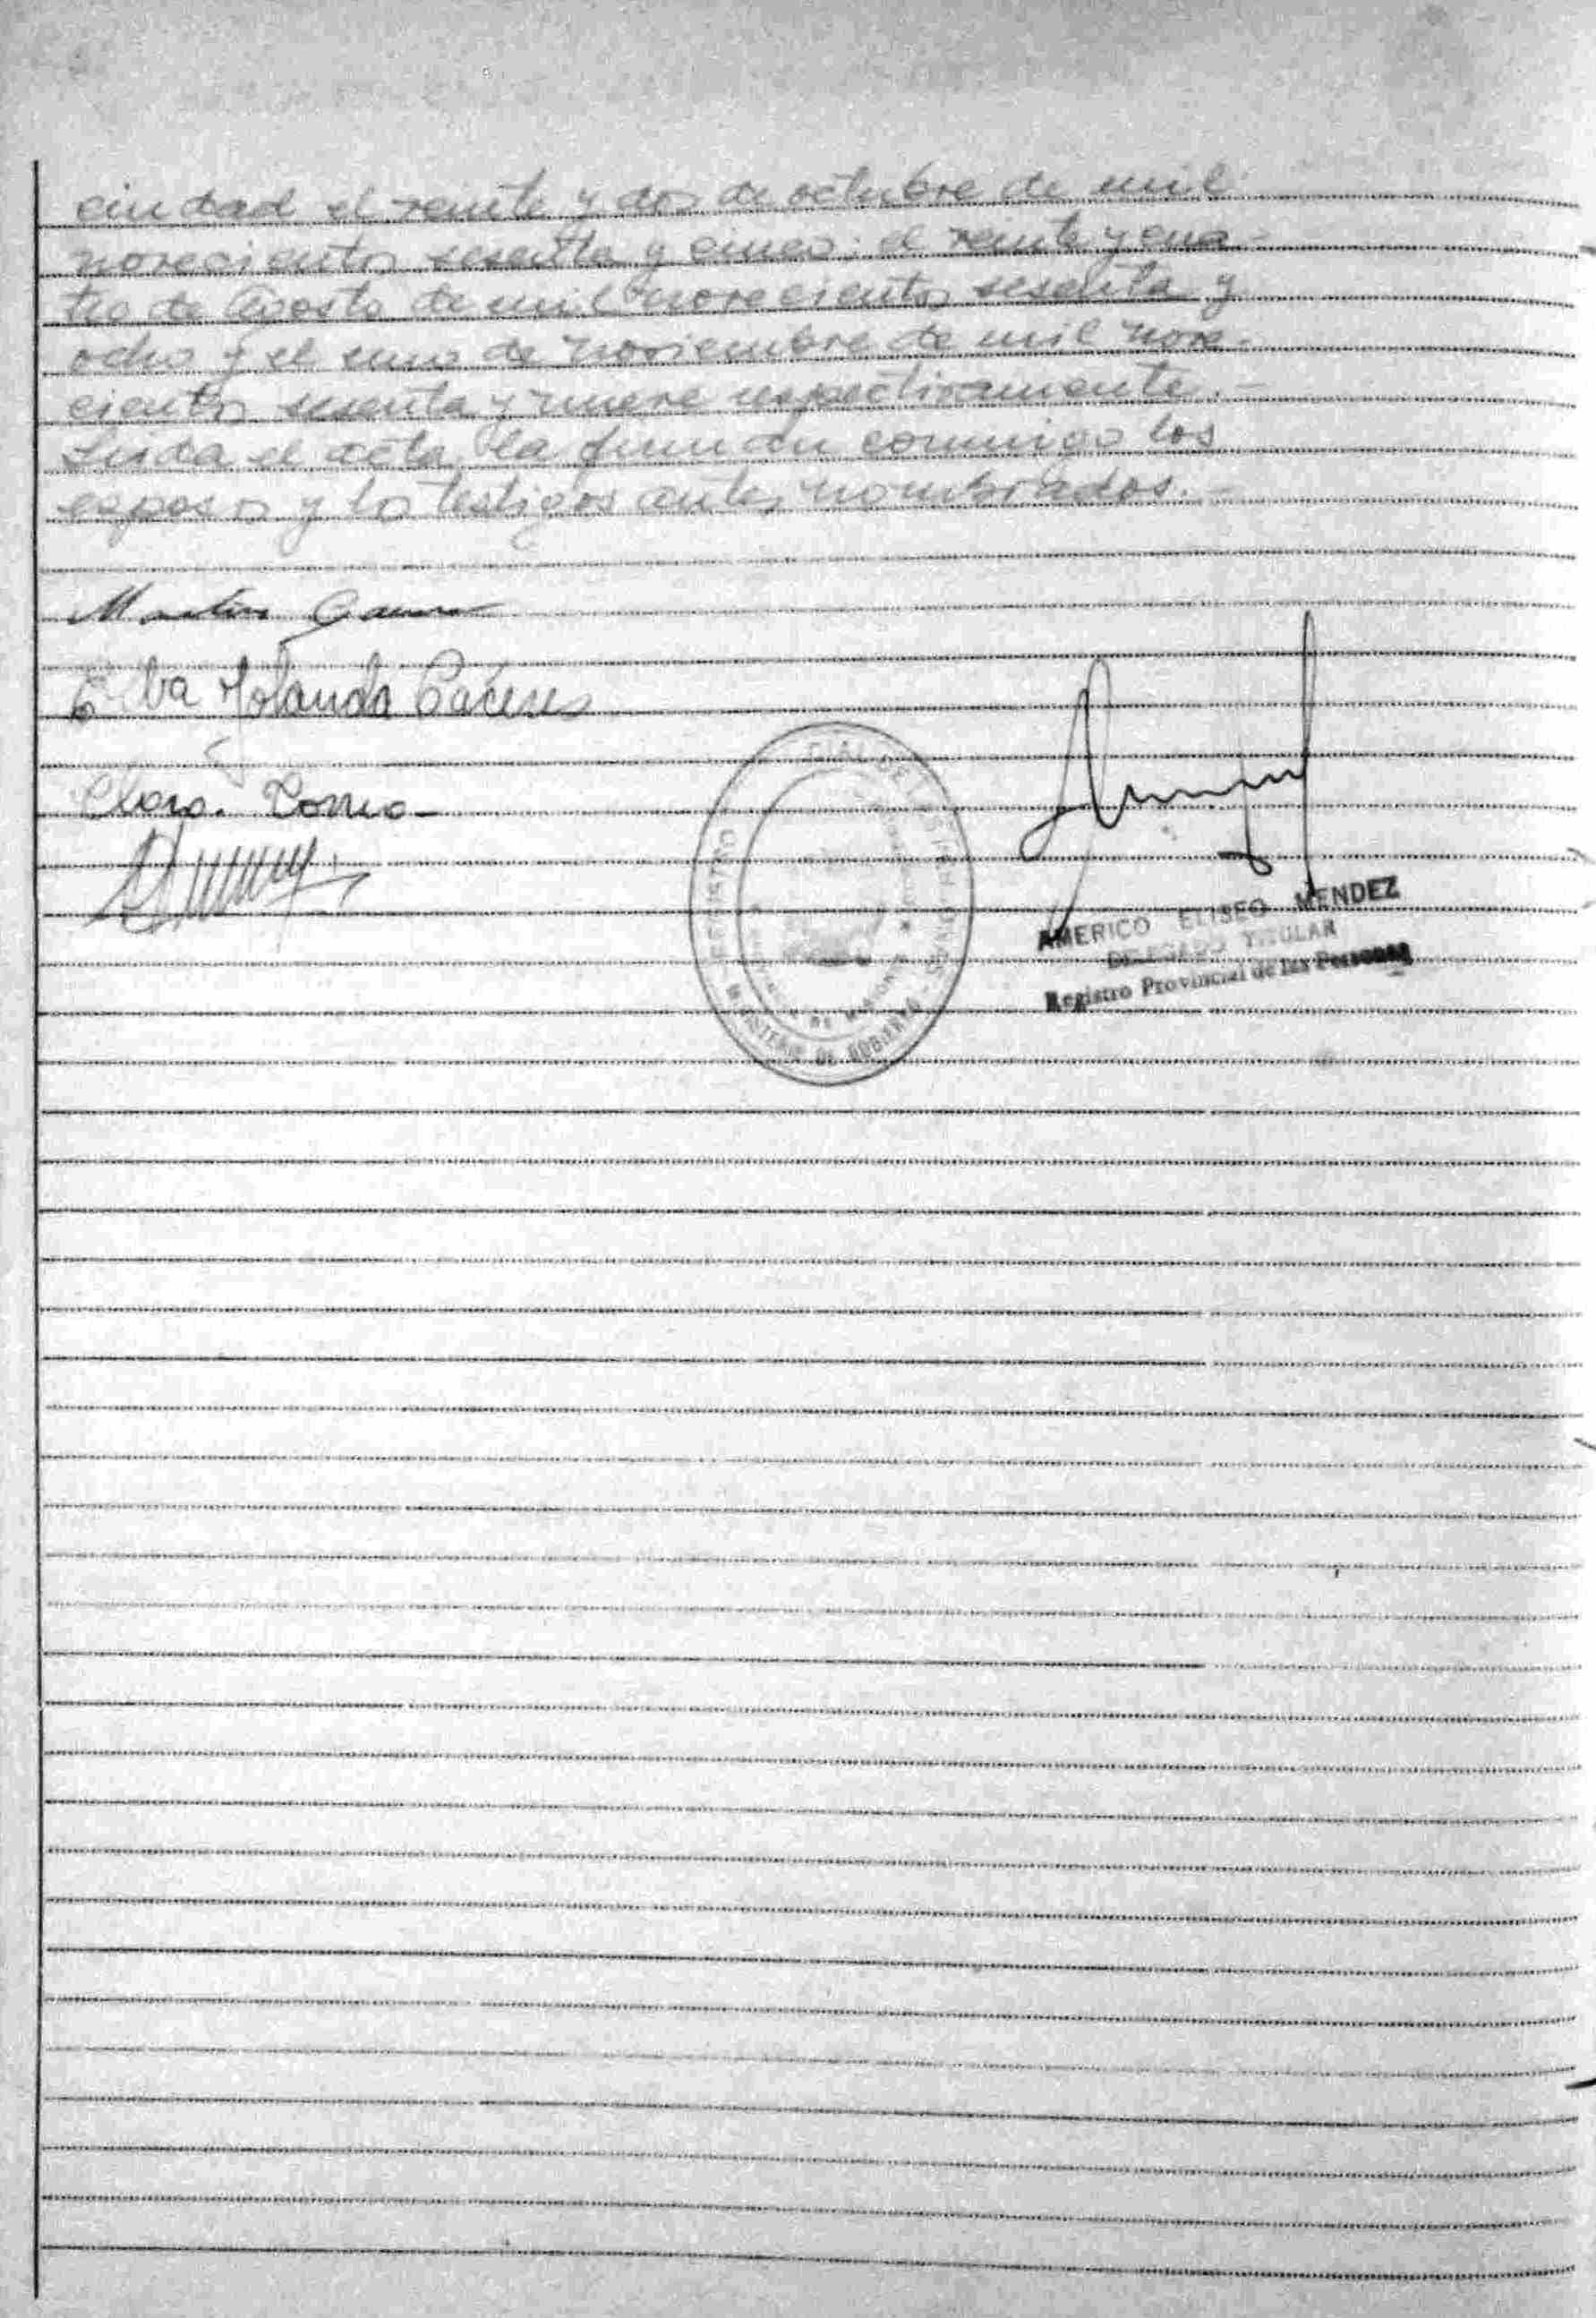 ciudad el veinte y dos de octubre de mil
novecientos sesenta y cinco; el veinte y cua-
tro de Agosto de mil novecientos sesenta y
ocho y el uno de noviembre de mil nove-
cientos sesenta y nueve respectivamente.-
Leida el acta, la firman conmigo los
esposos y los testigos antes nombrados.-
Martin
Elba Yolanda Cáceres
Clara
AMERICO ELISEO MENDEZ
DELEGADO TITULAR
Registro Provincial de las Personas
REGISTRO PERSONAS
MINISTERIO DE GOBIERNO